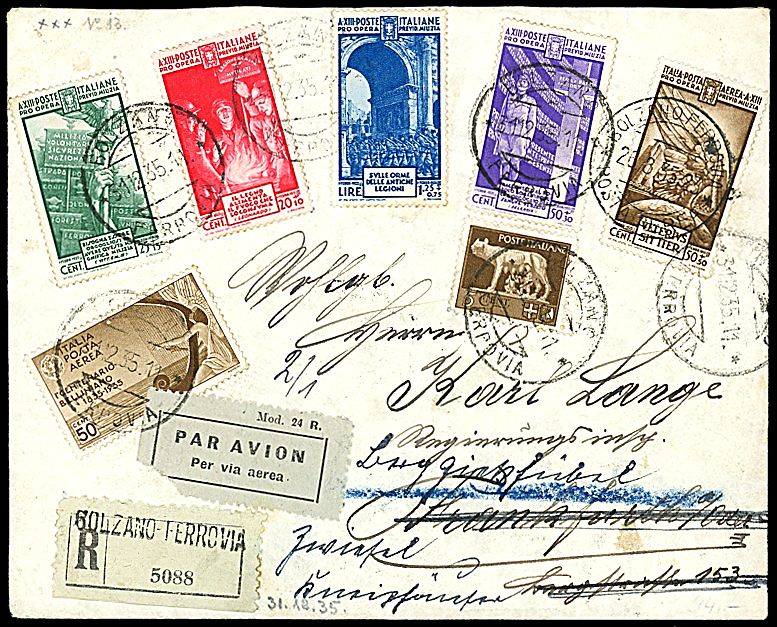 ××× Nº 13.
A·XIII·POSTE ITALIANE
PRO OPERA PREVID MILIZIA
MILIZIA
VOLONTARIA
SICUREZZA
NAZIONALE
CENT.
A·XIII·POSTE ITALIANE
PRO OPERA PREVID MILIZIA
IL LEGNO
ALIMENTA
CENT 20+10
A·XIII·POSTE ITALIANE
PRO OPERA PREVID MILIZIA
SVLLE ORME
DELLE ANTICHE
LEGIONI
LIRE 1,25+0,75
A·XIII·POSTE ITALIANE
PRO OPERA PREVID MILIZIA
CENT 50+30
ITALIA·POSTA AEREA·A·XIII
PRO OPERA PREVID MILIZIA
VLTERIVS
CENT. 50+30
BOLZANO FERROVIA
31.12.35.
POSTE ITALIANE
5 CENT
ITALIA
POSTA
AEREA
CENTENARIO
BELLINIANO
1835-1935
CENT 50
Mod. 24 R.
PAR AVION
Per via aerea
BOLZANO-FERROVIA
R
5088
Wohlgeb.
Herrn
2/1
Karl Lange
Regierungsinsp.
Berggießhübel
Zwiesel
31.12.35.